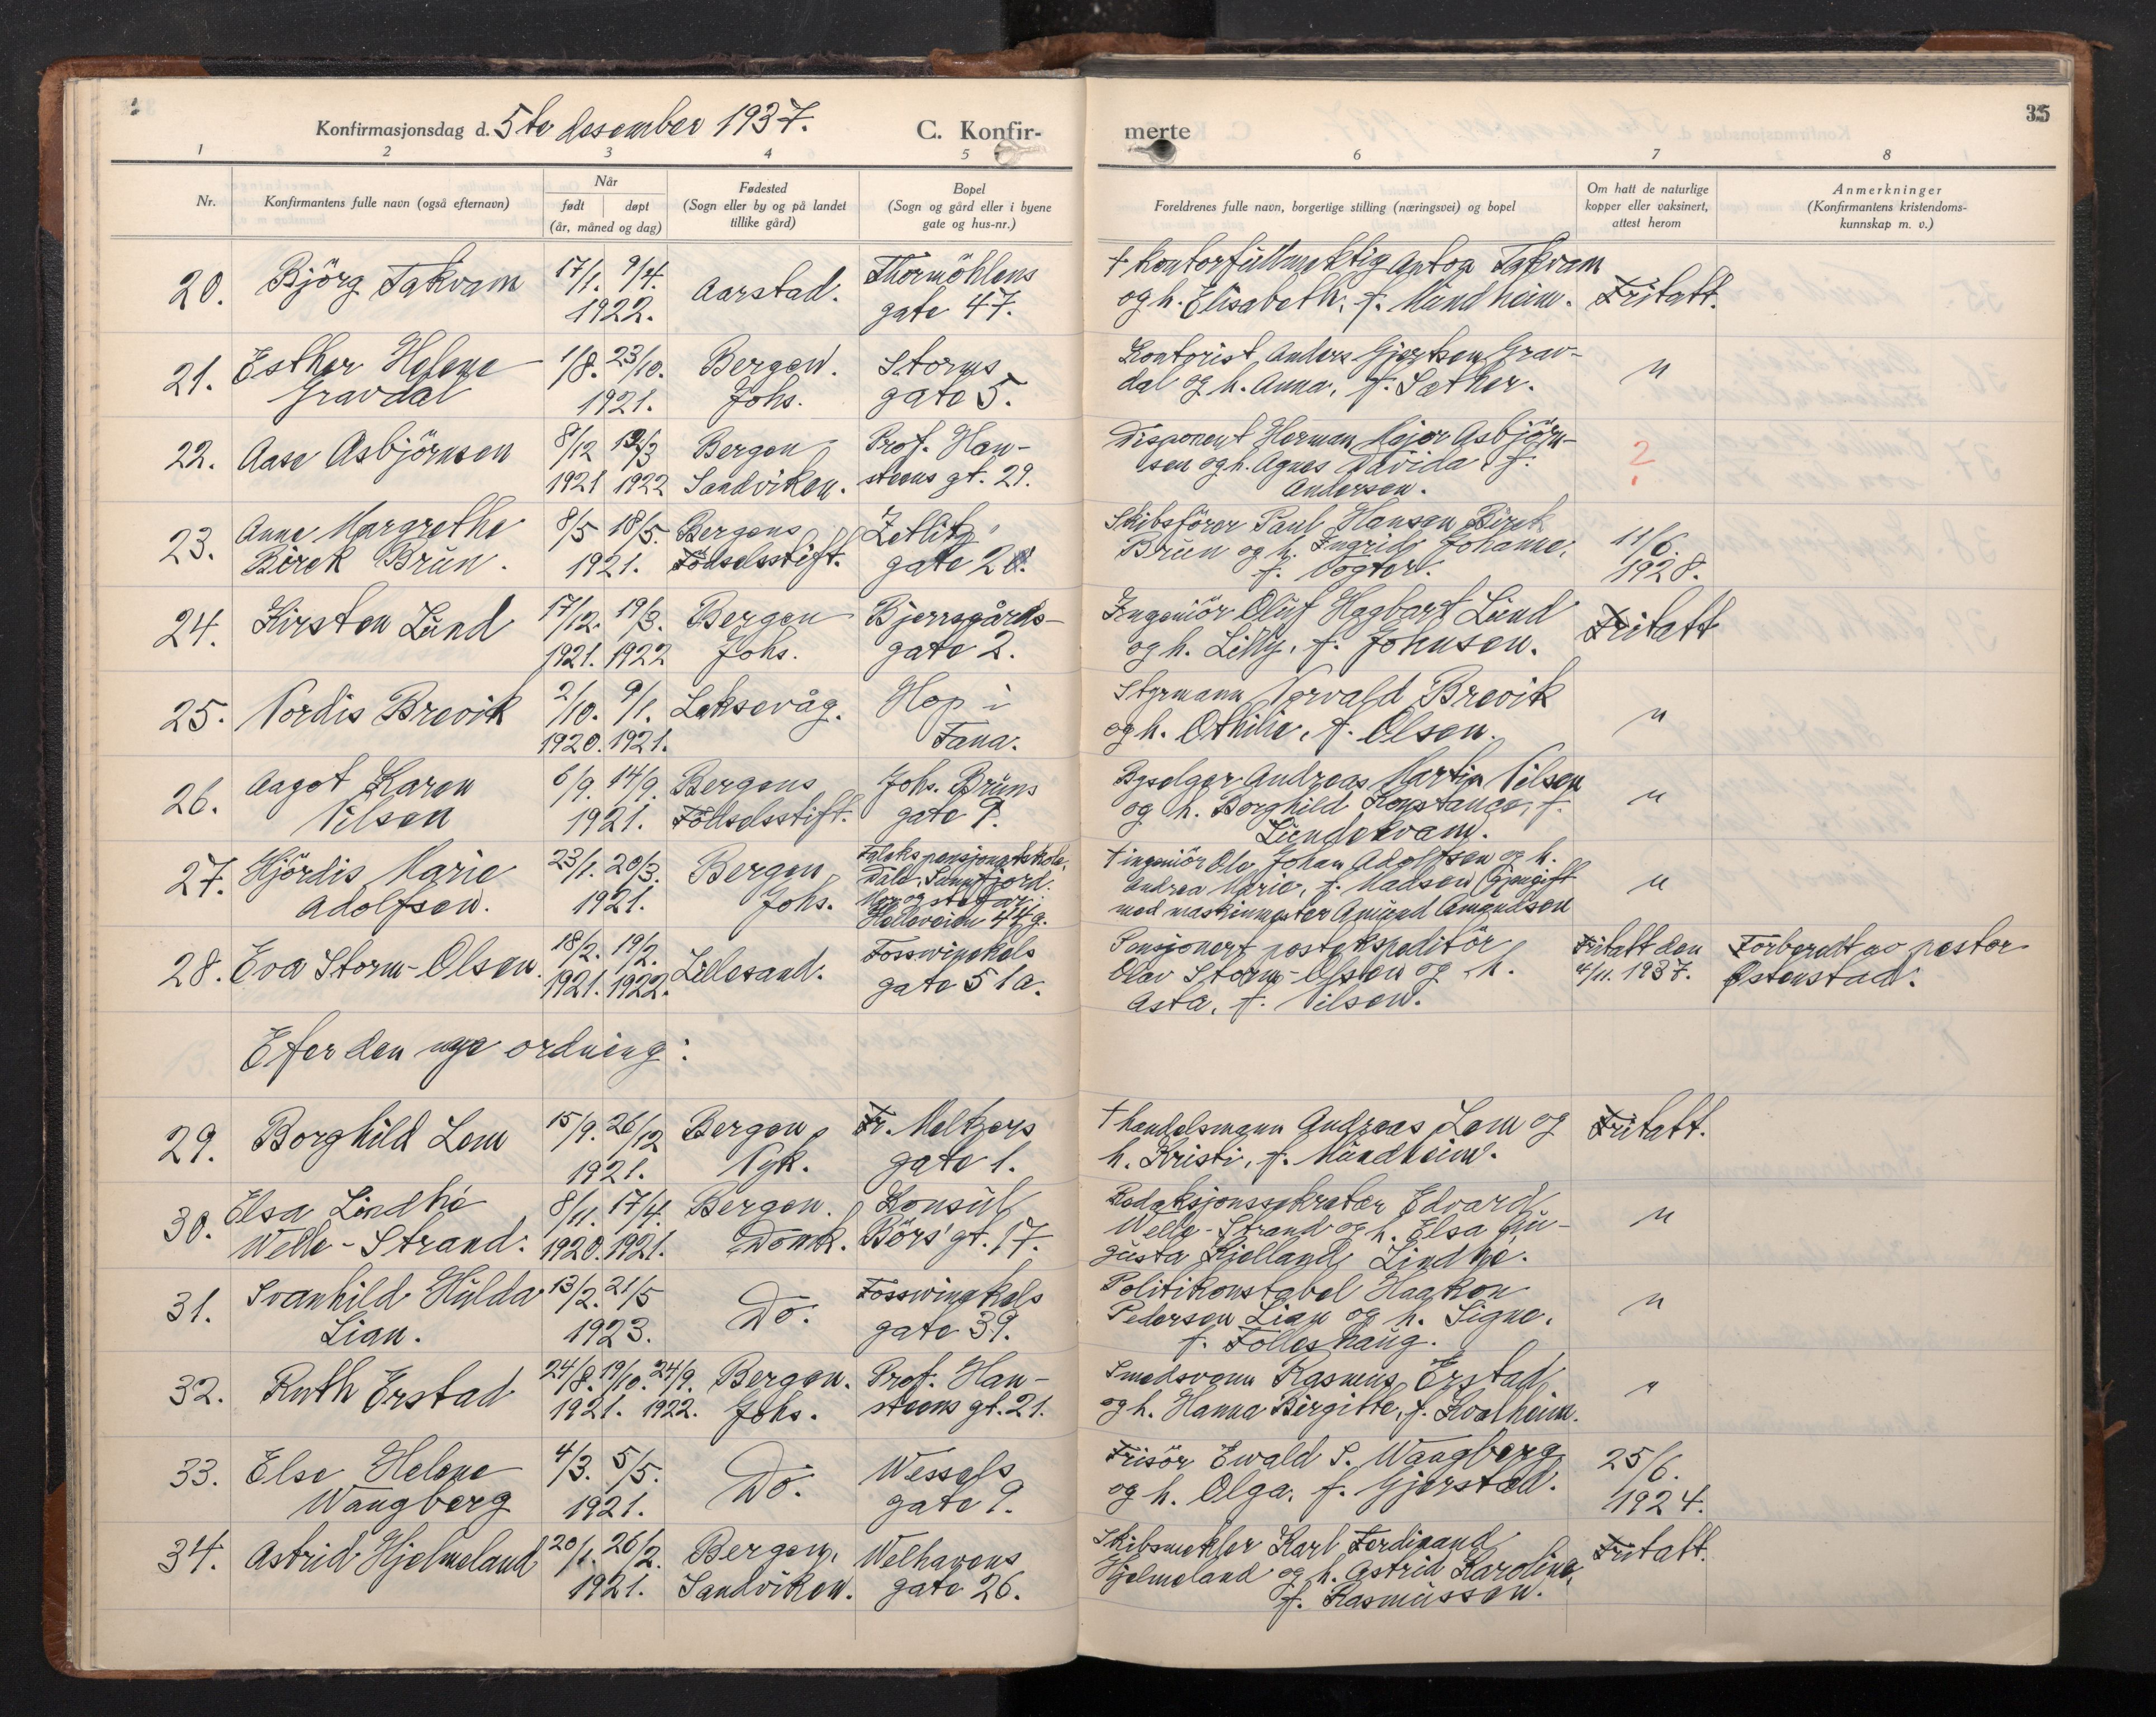 Konfirmasjonsdag d. 5te desember 1937.
C. Konfir-
merte
35
1 2 3 4 5 6 7 8
Nr.
Konfirmantens fulle navn (også efternavn)
Når
født døpt
(år, måned og dag)
Fødested
(Sogn eller by og på landet
tillike gård)
Bopel
(Sogn og gård eller i byene
gate og hus-nr.)
Foreldrenes fulle navn, borgerlige stilling (næringsvei) og bopel
Om hatt de naturlige
kopper eller vaksinert,
attest herom
Anmerkninger
(Konfirmantens kristendoms-
kunnskap m. v.)
20. Björg Takvam
17/1. 9/4.
1922.
Aarstad.
Thormöhlens
gate 47.
† Kontorfullmektig Anton Takvam
og h. Elisabeth, f. Mundheim.
Fritatt.
21. Esther Helene
Gravdal
1/8. 23/10.
1921.
Bergen.
Johs.
Storms
gate 5.
Kontorist Anders Gjertsen Grav-
dal og h. Anna, f. Sæther.
"
22. Aase Asbjörnsen
8/12 12/3
1921 1922
Bergen,
Sandviken.
Prof. Han-
steens gt. 29.
Disponent Herman Mejer Asbjörn-
sen og h. Agnes Davida, f.
Andersen.
?
23. Anne Margrethe
Birck Brun.
8/5 18/5.
1921.
Bergens
Födselsstift.
Zetlitz
gate 2
Skibsförer Paul Hansen Birck
Brun og h. Ingrid Johanne,
f. Vogter.
11/6.
1928.
24. Kirsten Lund
17/12. 19/3.
1921. 1922
Bergen
Johs.
Bjerregårds-
gate 2.
Ingeniör Oluf Hagbart Lund
og h. Lilly, f. Johnsen.
Fritatt
25. Nordis Brevik
2/10. 9/1.
1920. 1921.
Laksevåg.
Hop i
Fana.
Styrmann Norvald Brevik
og h. Othilie, f. Olsen.
"
26. Aagot Karen
Nilsen
6/9. 14/9.
1921.
Bergens
Födselsstift.
Johs. Bruns
gate 9.
Byselger Andreas Martin Nilsen
og h. Borghild Konstance, f.
Lundekvam.
"
27. Hjördis Marie
Adolfsen.
23/1. 20/3.
1921.
Bergen,
Johs.
Faleks pensjonatskole,
Dale, Sunnfjord.
Mor og stefar:
Helleveien 44 g.
† ingeniör Ole Johan Adolfsen og h.
Andrea Marie, f. Madsen (gjengift
med maskinmester Amund Amundsen
"
28. Eva Storm-Olsen.
18/2. 19/2.
1921. 1922.
Lillesand.
Fosswinckels
gate 51a.
Pensjonert postekspeditör
Olav Storm-Olsen og h.
Asta, f. Nilsen.
Fritatt den
4/11. 1937.
Forberedt av pastor
Østenstad.
Efter den nye ordning:
29. Borghild Lem
15/9. 26/12
1921.
Bergen,
Nyk.
Fr. Meltzers
gate 1.
† handelsmann Andreas Lem og
h. Kristi, f. Mundheim.
Fritatt.
30. Elsa Lindhé
Welle-Strand.
8/11. 17/4.
1920. 1921.
Bergen.
Domk.
Konsul
Börs' gt. 17.
Redaksjonssekretær Edvard
Welle-Strand og h. Elsa Au-
gusta Kjelland, Lindhé.
"
31. Svanhild Hulda
Lian.
13/2. 21/5
1923.
Do.
Fosswinckels
gate 39.
Politikonstabel Haakon
Pedersen Lian og h. Signe,
f. Folleshaug.
"
32. Ruth Erstad
24/8. 19/10. 24/9.
1921. 1922.
Bergen.
Johs.
Prof. Han-
steens gt. 21.
Smedsvenn Rasmus Erstad
og h. Hanna Birgitte, f. Hvalheim.
"
33. Else Helene
Wangberg
4/3. 5/5.
1921.
Do.
Wessels
gate 9.
Frisör Ewald S. Wangberg
og h. Olga, f. Gjerstad.
25/6.
1924.
34. Astrid Hjelmeland
20/1. 26/2.
1921.
Bergen,
Sandviken.
Welhavens
gate 26.
Skibsmekler Karl Ferdinand
Hjelmeland og h. Astrid Karoline,
f. Rasmussen.
Fritatt.